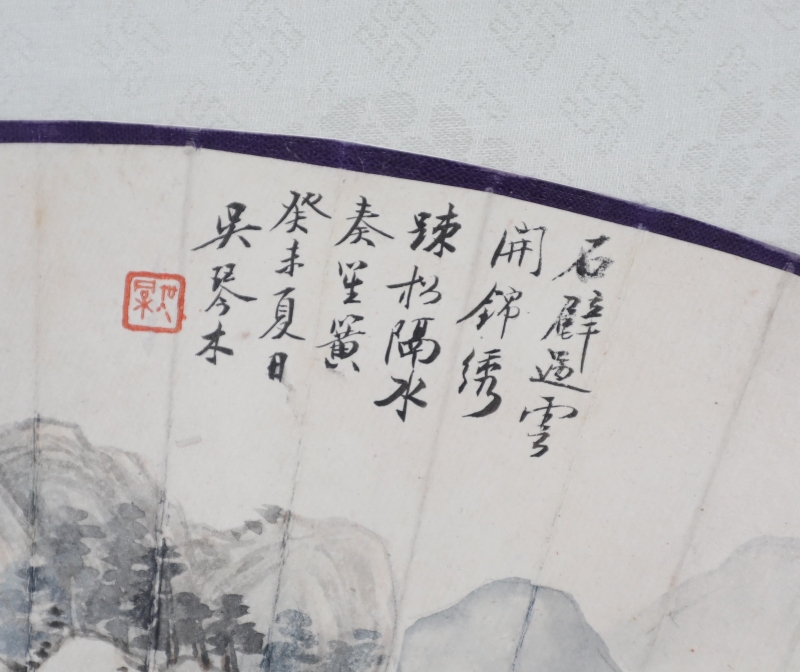 石壁過雲
開錦綉
踈松隔水
奏笙簧
癸未夏日
吳琴木